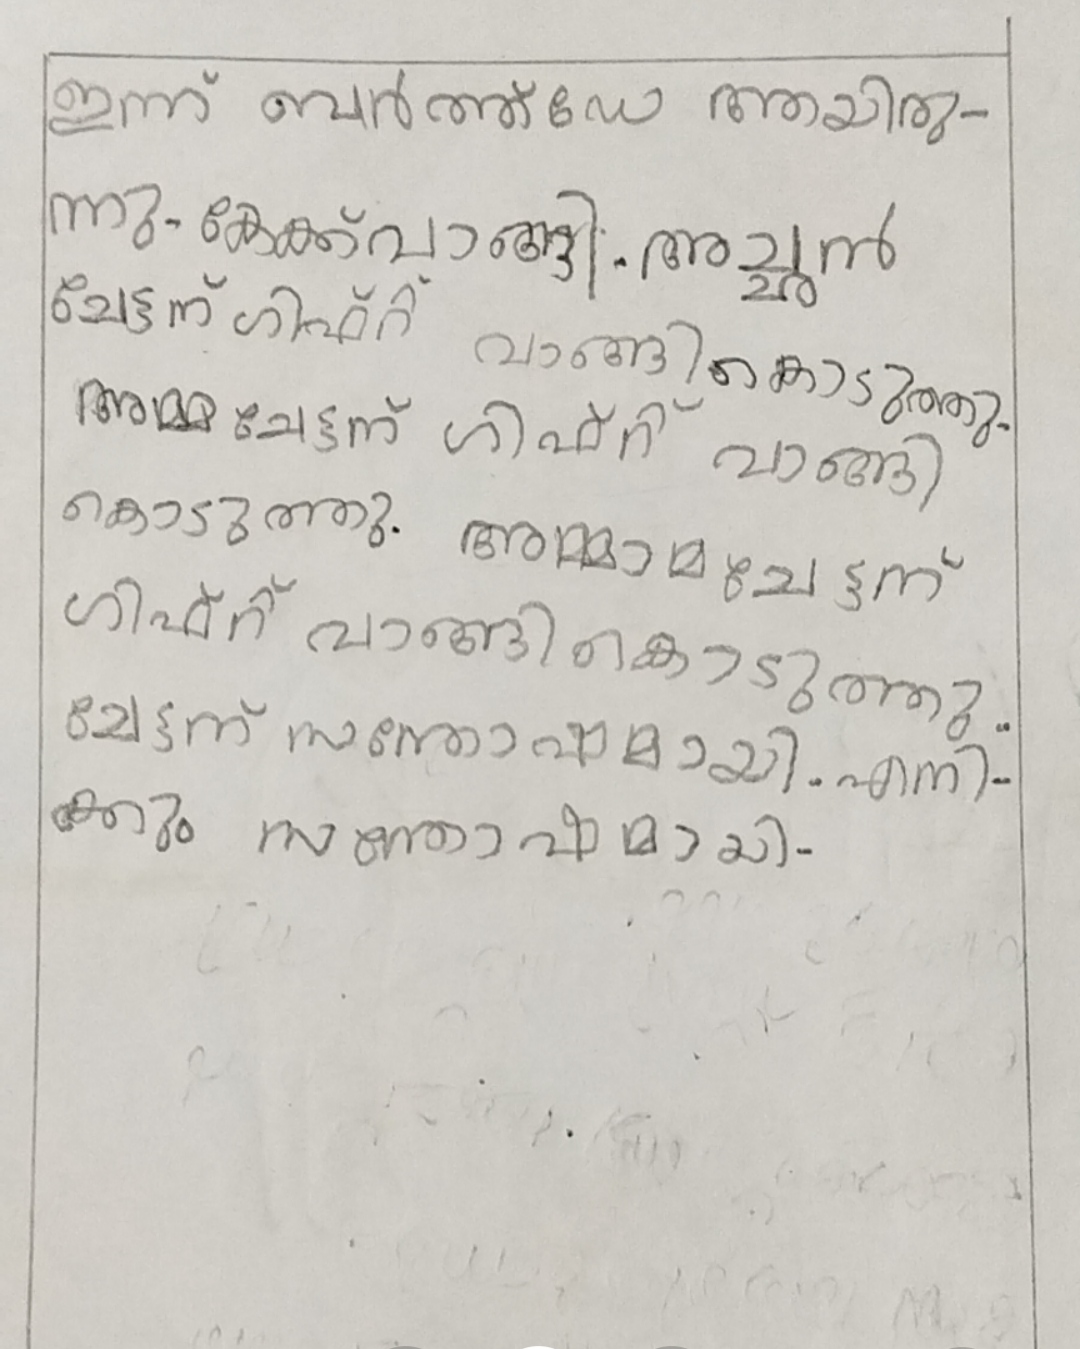 ഇന്ന് ബെർത്ത്ഡേ ആയിരു-
ന്നു. കേക്ക് വാങ്ങി. അച്ഛൻ
ചേട്ടന് ഗിഫ്റ്റ് വാങ്ങി കൊടുത്തു.
അമ്മ ചേട്ടന് ഗിഫ്റ്റ് വാങ്ങി
കൊടുത്തു. അമ്മാമ ചേട്ടന്
ഗിഫ്റ്റ് വാങ്ങി കൊടുത്തു.
ചേട്ടന് സന്തോഷമായി. എനി-
ക്കും സന്തോഷമായി.